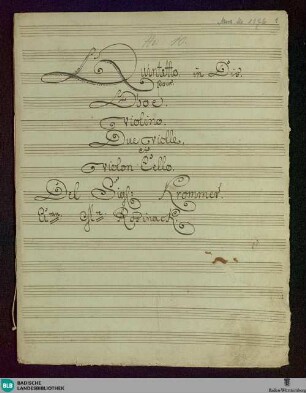 Mus. Hs. 1136
No. 10.
L Quintetto in Dis.
pour
L'Oboe.
Violino.
Due Violle.
et
Violon Cello.
Del Sigl: Krommer.
BLB BADISCHE
LANDESBIBLIOTHEK
Baden-Württemberg